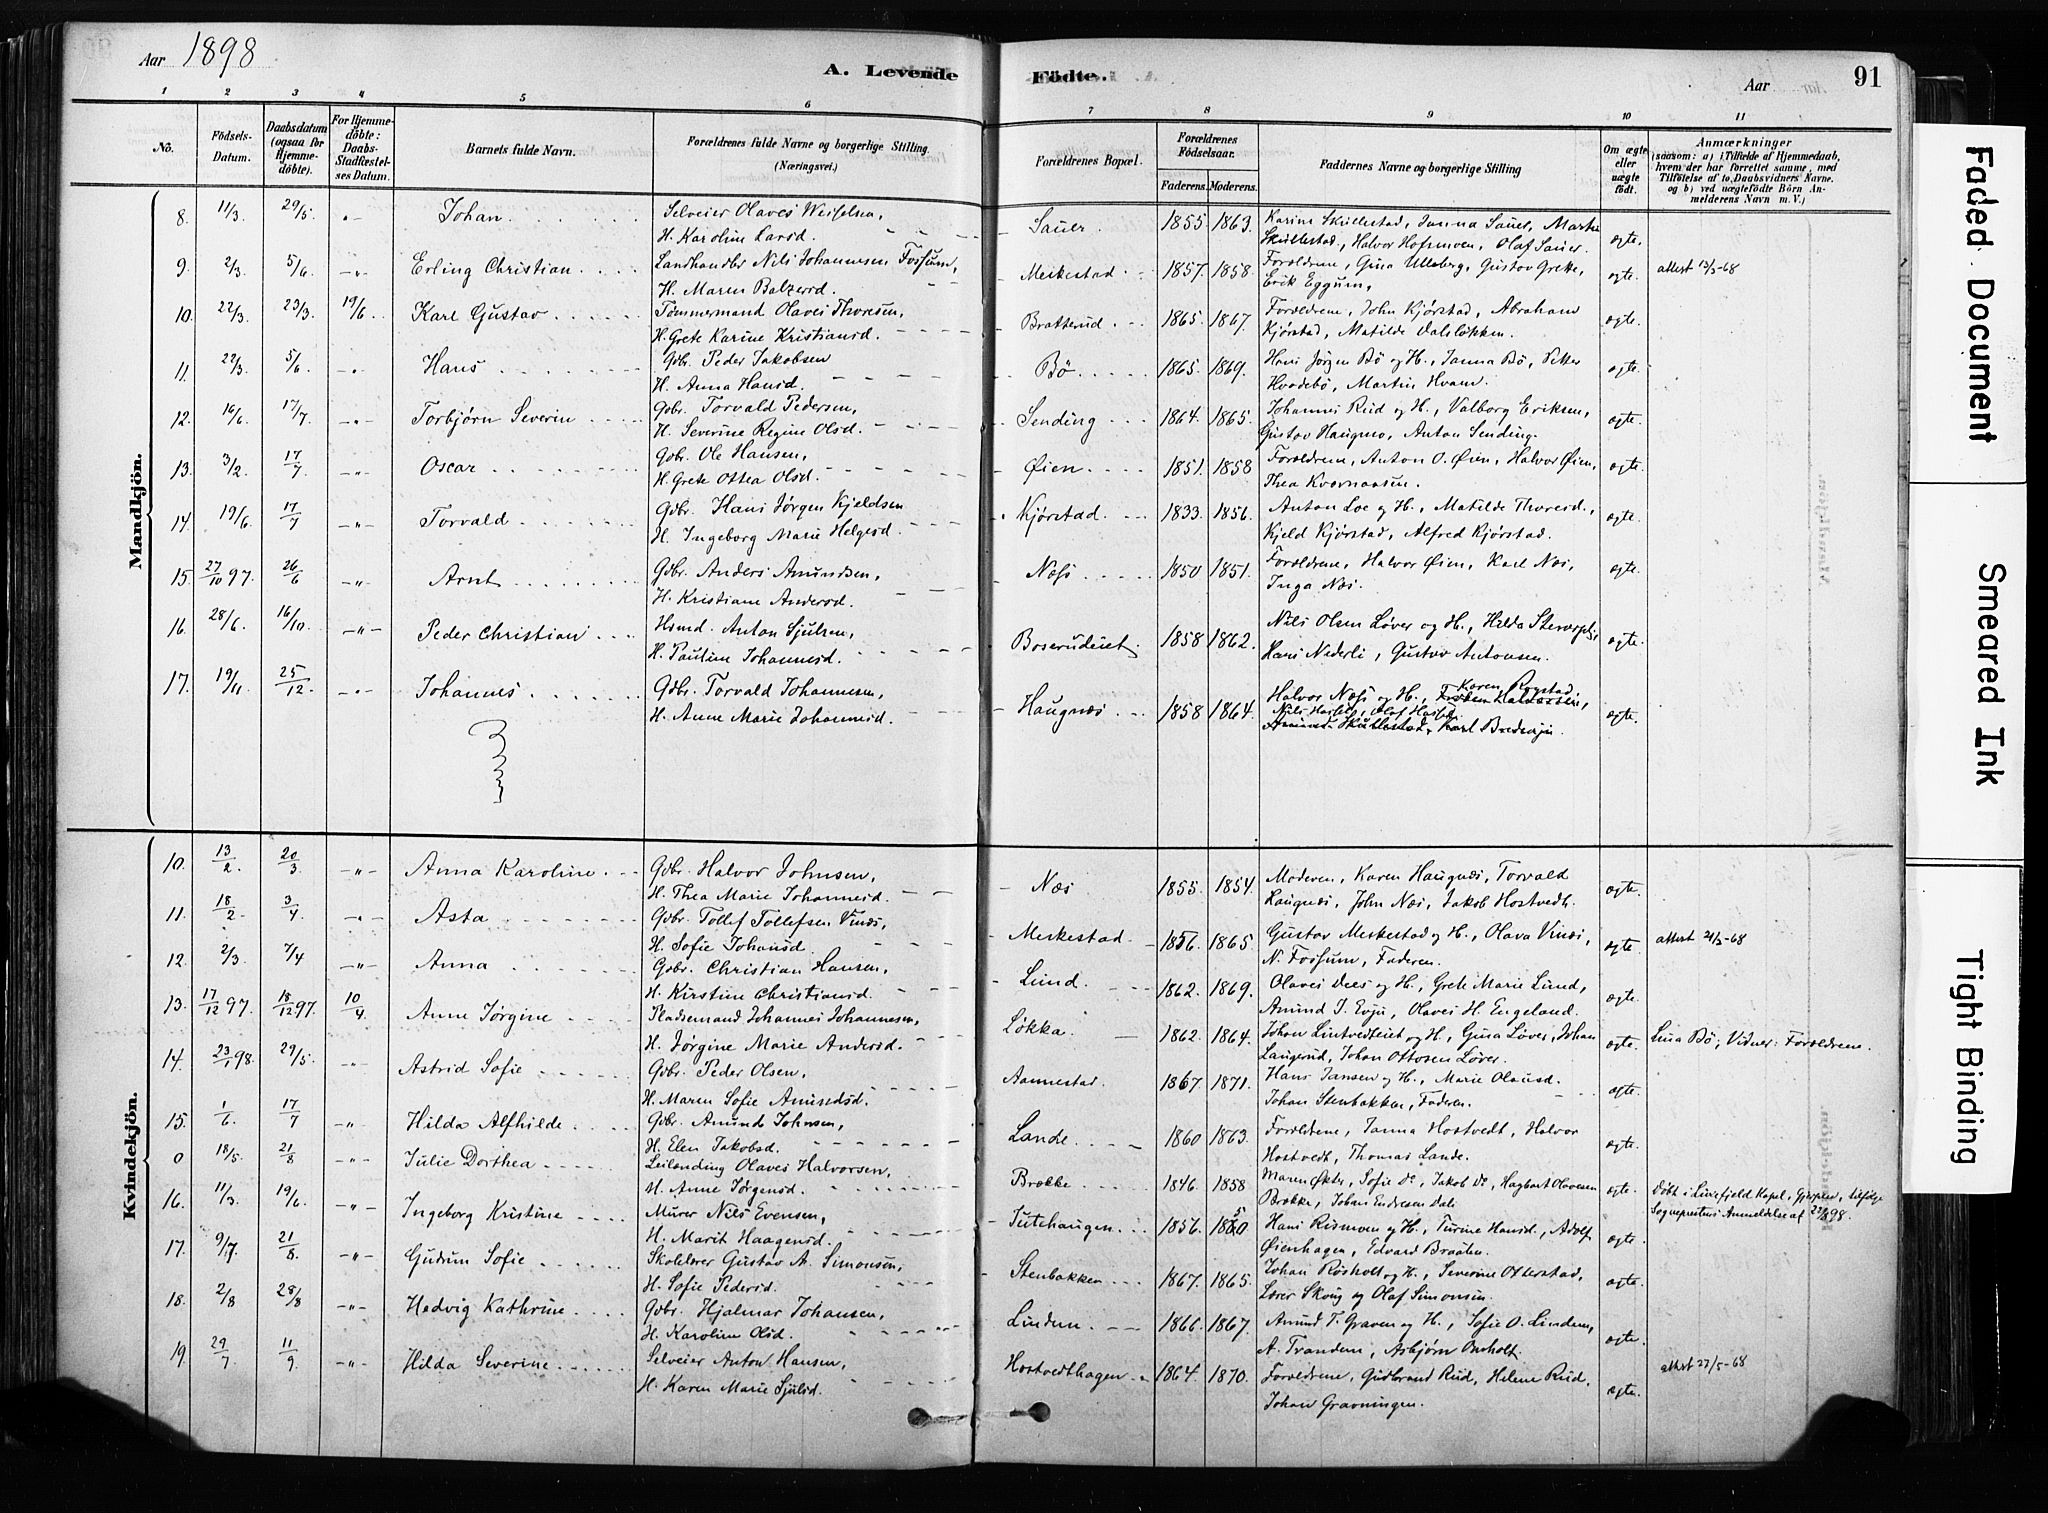 Aar 1898
A. Levende Födte.
Aar
91
1 2 3 4 5 6 7 8 9 10 11
No.
Födsels-Datum.
Daabsdatum (ogsaa for Hjemme-döbte).
For Hjemme-döbte: Daabs-Stadfæstel-ses Datum.
Barnets fulde Navn.
Forældrenes fulde Navne og borgerlige Stilling. (Næringsvei.)
Forældrenes Bopæl.
Forældrenes Födselsaar.
Faderens. Moderens.
Faddernes Navne og borgerlige Stilling
Om ægte eller uægte födt.
Anmærkninger
(saasom: a) i Tilfælde af Hjemmedaab, hvem der har forrettet samme, med Tilföielse af to Daabsvidners Navne. og b) ved uægtefödte Börn Anmelderens Navn m. V.)
Mandkjön.
8. 11/3 29/5 -"- Johan. Selveier Olaves Weselsen, Sauer. 1855. 1863. Karine Skullestad, Janna Sauer, Marthe ægte.
H. Karoline Larsd. Skullestad, Halvor Hofsmoen, Olaf Sauer.
9. 2/3 5/6 -"- Erling Christian Landhandler Nils Johannesen Fossum, Meskestad 1857. 1858. Forældrene, Gina Ulleberg, Gustav Grette, ægte. attest 13/5-68
H. Maren Balzersd. Erik Eggum,
10. 22/3 23/3. 19/6 Karl Gustav Tømmermand Olaves Thoresen, Bratterud 1865. 1867. Forældrene, John Kjørstad, Abraham ægte.
H. Grete Karine Kristiansd. Kjørstad, Matilde Dalsløkken.
11. 22/3. 5/6 -"- Hans Gbr. Peder Jakobsen Bø 1865. 1869. Hans Jørgen Bø og H., Janna Bø, Petter ægte.
H. Anna Hansd. Hvadebø, Martin Hvam.
12. 16/6 17/7 -"- Torbjørn Severin Gbr. Torvald Pedersen, Sending 1864. 1865. Johannes Rud og H., Valborg Eriksen, ægte.
H. Severine Regine Olsd. Gustav Haugmo, Anton Sending.
13. 3/2 17/7 -"- Oscar Gbr. Ole Hansen, Øien 1851. 1858 Forældrene, Anton O. Øien, Halvor Øien, ægte.
H. Grete Ottea Olsd. Thea Kværnaasen.
14. 19/6. 17/7 -"- Torvald Gbr. Hans Jørgen Kjeldsen Kjørstad 1833. 1856. Anton Loe og H., Matilde Thoresd., ægte.
H. Ingeborg Marie Helgesd. Kjeld Kjørstad, Alfred Kjørstad.
15. 27/10 97. 26/6 -"- Arnt Gbr. Anders Amundsen, Næss 1850 1851. Forældrene, Halvor Øien, Karl Næs, ægte.
H. Kristiane Andersd. Inga Næs.
16. 28/6. 16/10. -"- Peder Christian Hsmd. Anton Sjulsen, Boserudeiet 1858 1862. Nils Olsen Løver og H., Hilda ægte.
H. Pauline Johannesd. Hans Nederli, Gustav Antonsen.
17. 19/11 25/12. -"- Johannes Gbr. Torvald Johannesen, Haugnæs 1858 1864. Halvor Næss og H., Karen Rygstad, ægte.
H. Anne Marie Johannesd. Karl
Kvindekjön.
10. 13/2 20/3 -"- Anna Karoline Gbr. Halvor Johnsen, Næs 1855. 1854. Moderen, Karen Haugnæs, Torvald ægte.
H. Thea Marie Johannesd. Haugnæs, John Næs, Jakob Hostvedt.
11. 18/2 3/4 -"- Asta Gbr. Tollef Tollefsen Vinæs, Meskestad 1856. 1865. Gustav Meskestad og H., Olava Vinæs, ægte. attest 21/5-68
H. Sofie Johansd. N. Fossum, Faderen.
12. 2/3. 7/4 -"- Anna Gbr. Christian Hansen, Lund 1862. 1869. Olaves Dees og H., Grete Marie Lund, ægte.
H. Kirstine Christiansd. Amund J. Evju, Olaves H. Engeland.
13. 17/12 97. 18/12 97. 10/4 Anne Jørgine Pladsemand Johannes Johannesen, Løkka 1862. 1864. Johan Lintvedteiet og H., Gina Løver, Johan ægte. Lina Bø; Vidner: Forældrene.
H. Jørgine Marie Andersd. Langerud, Johan Ottosen Løver.
14. 23/1 98. 29/5. -"- Astrid Sofie Gbr. Peder Olsen, Aannestad. 1867 1871. Hans Jansen og H., Marie Olausd. ægte.
H. Maren Sofie Amundsd. Johan Stenbakken, Faderen.
15. 1/6. 17/7 -"- Hilda Alfhilde Gbr. Amund Johnsen, Lande 1860 1863. Forældrene, Janna Hostvedt, Halvor ægte.
H. Elen Jakobsd. Hostvedt, Thomas Lande.
0 18/5 21/8 -"- Julie Dorthea Leilending Olaves Halvorsen, Brække 1846. 1858 Maren Økter, Sofie Do, Jakob Do, Hagbart Olavesen ægte. Døbt i Luxefjeld Kapel, Gjerpen, ifølge
H. Anne Jørgensd. Brække, Johan Endresen Dali Sogneprestens Anmeldelse af 98.
16. 11/3. 19/6. -"- Ingeborg Kristine Murer Nils Evensen, Tutehaugen 1856. Hans Rismoen og H., Turine Hansd., Adolf ægte.
H. Marit Haagensd. Øienhagen, Edvard Braaten.
17. 9/7. 21/8. -"- Gudrun Sofie Skolelærer Gustav A. Simonsen, Stenbakken 1867. 1865. Johan Rosholt og H., Severine Otterstad, ægte.
H. Sofie Pedersd. Lærer Skoug og Olaf Simonsen.
18. 2/8 28/8 -"- Hedvig Kathrine Gbr. Hjalmar Johansen, Linden 1866. 1867. Amund T. Graven og H., Sofie O. Linden, ægte.
H. Karoline Olsd. A. Tranden, Asbjørn Omholt.
19. 29/7 11/9. -"- Hilda Severine Selveier Anton Hansen, Hostvedthagen 1864. 1870. Forældrene, Gudbrand Rud, Helene Rud, ægte. attest 27/5-68
H. Karen Marie Sjulsd. Johan Gravningen.
Faded Document
Smeared Ink
Tight Binding